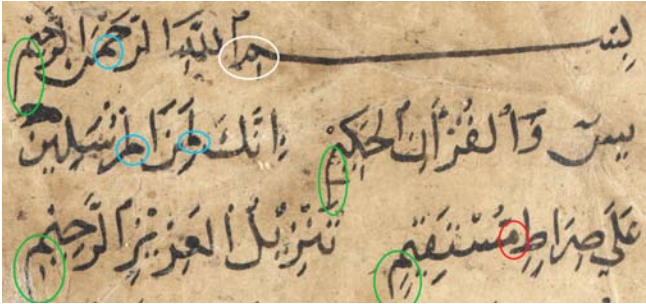 بِسْمِ اللّٰهِ الرَّحْمٰنِ الرَّحِيْمِ
يسٓ وَالْقُرْاٰنِ الْحَكِيْمِ اِنَّكَ لَمِنَ الْمُرْسَلِيْنَ
عَلَي صِرَاطٍ مُسْتَقِيْمٍ تَنْزِيْلَ الْعَزِيْزِ الرَّحِيْمِ